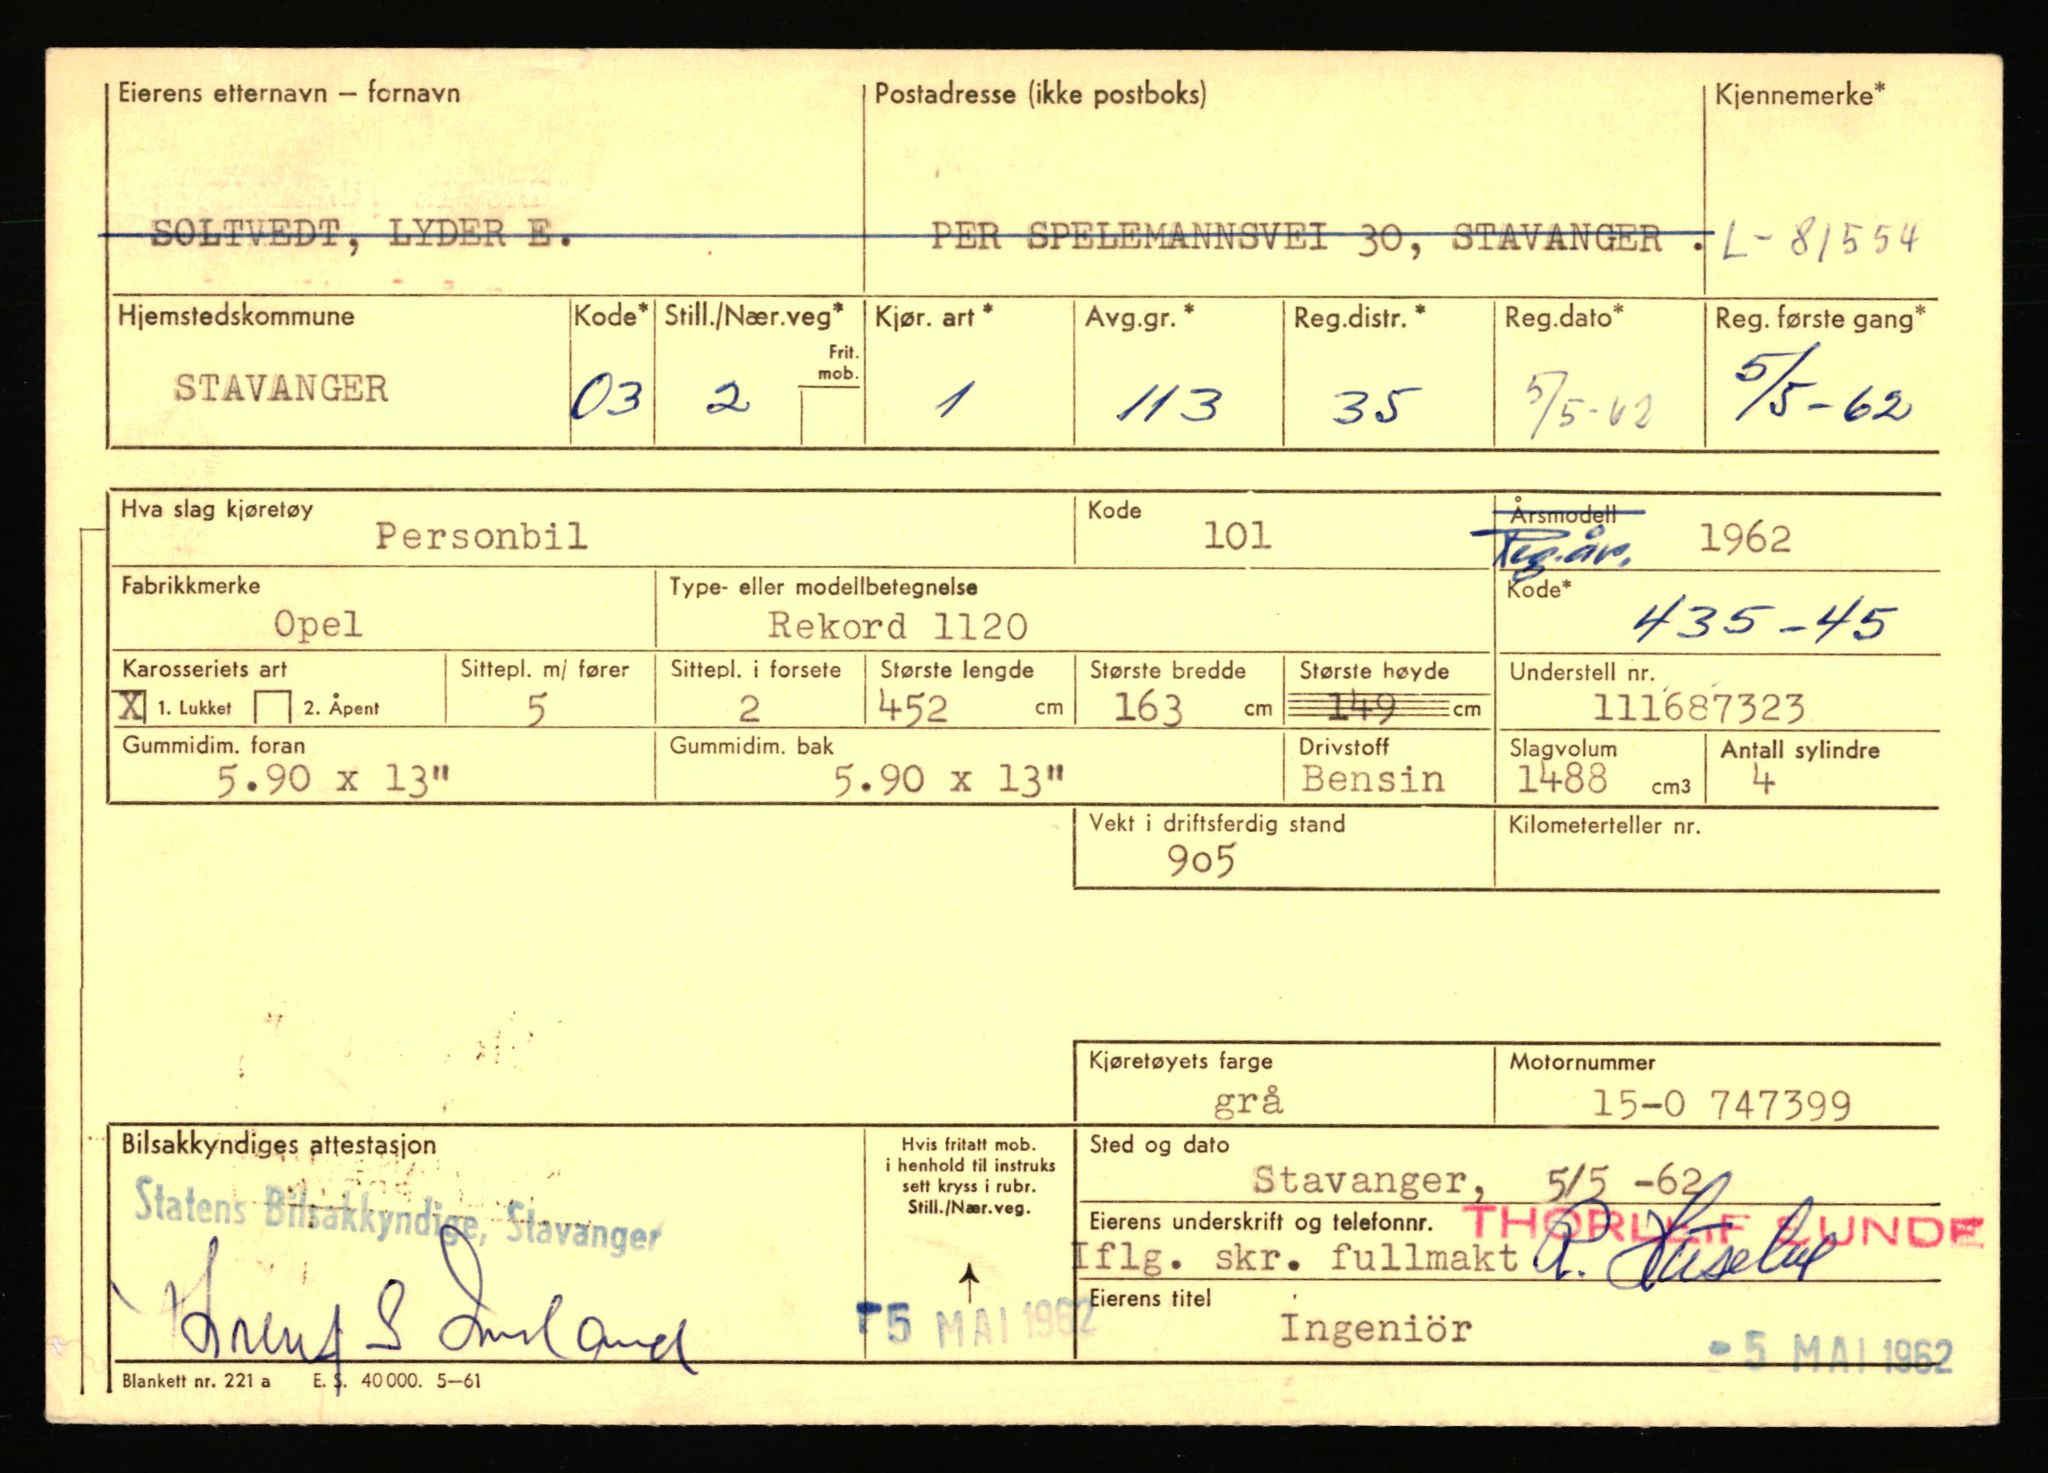 Eierens etternavn — fornavn Postadresse (ikke postboks) Kjennemerke*
SOLTVEDT, LYDER E. PER SPELEMANNSVEI 30, STAVANGER . L-81554
Hjemstedskommune Kode* Still./Nær.veg* Kjør. art* Avg.gr.* Reg.distr.* Reg.dato* Reg. første gang*
Frit.
mob.
STAVANGER 03 2 1 113 35 5/5-62 5/5-62
Hva slag kjøretøy Kode Årsmodell
Personbil 101 Reg.år. 1962
Fabrikkmerke Type- eller modellbetegnelse Kode*
Opel Rekord 1120 435-45
Karosseriets art Sittepl. m/ fører Sittepl. i forsete Største lengde Største bredde Største høyde Understell nr.
X 1. Lukket 2. Åpent 5 2 452 cm 163 cm 149 cm 111687323
Gummidim. foran Gummidim. bak Drivstoff Slagvolum Antall sylindre
5.90 x 13" 5.90 x 13" Bensin 1488 cm3 4
Vekt i driftsferdig stand Kilometerteller nr.
905
Kjøretøyets farge Motornummer
grå 15-0 747399
Bilsakkyndiges attestasjon Hvis fritatt mob.
i henhold til instruks
sett kryss i rubr.
Still./Nær.veg.
Sted og dato
Stavanger, 5/5 -62
Statens Bilsakkyndige, Stavanger
Eierens underskrift og telefonnr. THORLEIF SUNDE
Iflg. skr. fullmakt R.
Eierens titel
-5 MAI 1962 Ingeniör
-5 MAI 1962
Blankett nr. 221 a E. S. 40 000. 5—61